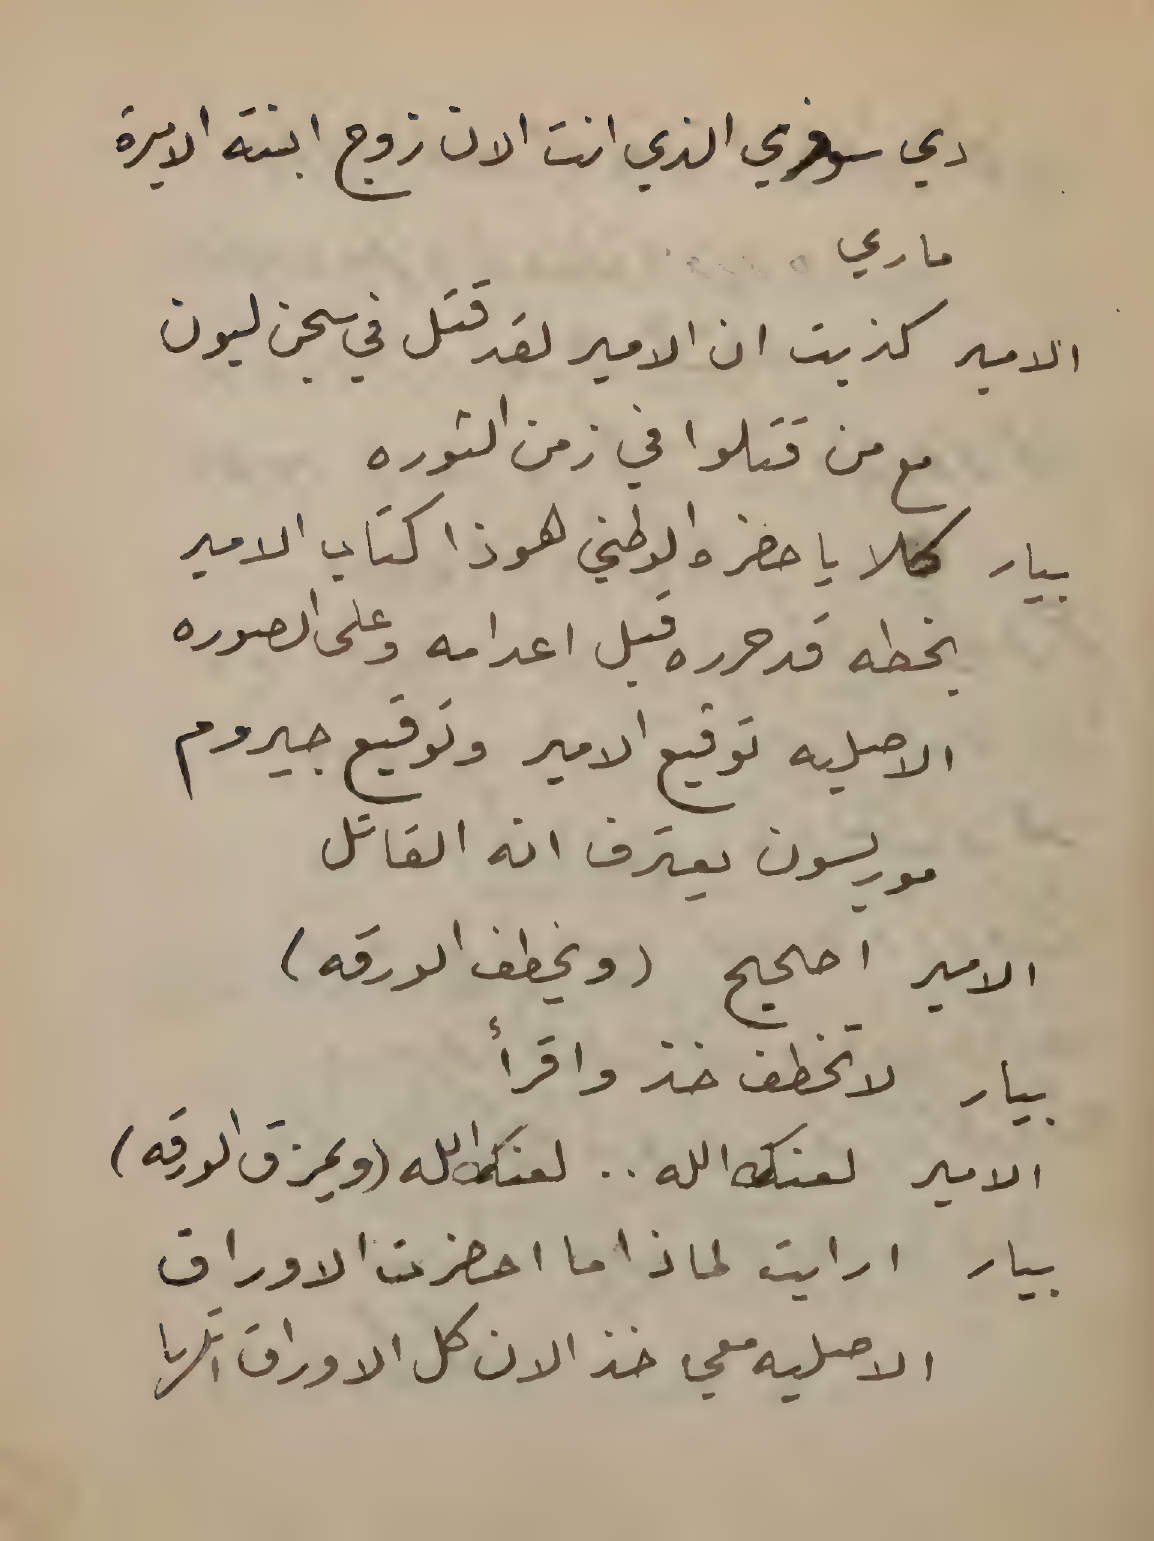 دي سوفري الذي انت الان زوج ابنته الاميرة
ماري
الامير كذبت ان الامير لقد قتل في سجن ليون
مع من قتلوا في زمن الثوره
بيار كلا يا حضره الوطني هوذا كتاب الامير
بخطه قد حرره قبل اعدامه وعلى الصوره
الاصليه توقيع الامير وتوقيع جيروم
موريسون يعترف انه القاتل
الامير اصحيح (ويخطف الورقه)
بيار لا تخطف خذ واقرأ
الامير لعنك الله .. لعنك الله (ويمزق الورقه)
بيار ارايت لماذا ما احضرت الاوراق
الاصليه معي خذ الان كل الاوراق